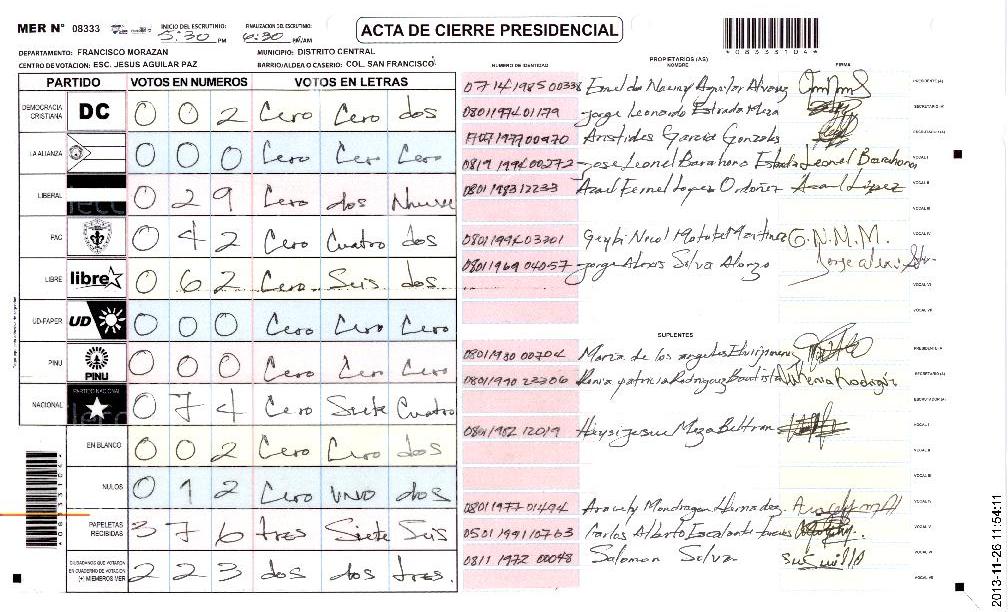 MER Nº 08333 INICIO DEL ESCRUTINIO: 5:30 PM FINALIZACION DEL ESCRUTINIO: 6:30 PM/AM
ACTA DE CIERRE PRESIDENCIAL
*08333104*
DEPARTAMENTO: FRANCISCO MORAZAN MUNICIPIO: DISTRITO CENTRAL
CENTRO DE VOTACION: ESC. JESUS AGUILAR PAZ BARRIO/ALDEA O CASERIO: COL. SAN FRANCISCO
PARTIDO VOTOS EN NUMEROS VOTOS EN LETRAS
DEMOCRACIA CRISTIANA DC 0 0 2 Cero Cero dos
LA ALIANZA 0 0 0 Cero Cero Cero
LIBERAL 0 2 9 Cero dos Nueve
PAC 0 4 2 Cero Cuatro dos
LIBRE libre 0 6 2 Cero Seis dos
UD-FAPER UD 0 0 0 Cero Cero Cero
PINU PINU 0 0 0 Cero Cero Cero
NACIONAL PARTIDO NACIONAL 0 7 4 Cero Siete Cuatro
EN BLANCO 0 0 2 Cero Cero dos
NULOS 0 1 2 Cero uno dos
PAPELETAS RECIBIDAS 3 7 6 tres Siete Seis
CIUDADANOS QUE VOTARON EN CUADERNO DE VOTACION (+) MIEMBROS MER 2 2 3 dos dos tres.
NUMERO DE IDENTIDAD PROPIETARIOS (AS) NOMBRE FIRMA
0714 1985 00338 Aguilar Alvarez PRESIDENTE (A)
0801 1974 01179 Jorge Leonardo Estrada Meza SECRETARIO (A)
Aristides Garcia Gonzales ESCRUTADOR (A)
0819 1994 00272 Jose Leonel Barahona Estrada Leonel Barahona VOCAL I
0801 1983 12233 Azael Fernel Lopez Ordoñez Azael López VOCAL II
VOCAL III
0801 1994 03201 Geybi Nicol Matute Martinez G.N.M.M. VOCAL IV
0801 1969 04057 Jorge Alexis Silva Alonzo Jorge Alexis VOCAL V
VOCAL VI
VOCAL VII
SUPLENTES
0801 1980 00704 Maria de los angeles PRESIDENTE (A)
0801 1990 23306 Kenia patricia Rodriguez Bautista Kenia Rodrigz SECRETARIO (A)
ESCRUTADOR (A)
0801 1982 12019 Meza Beltran VOCAL I
VOCAL II
VOCAL III
0801 1977 01494 Aracely Mondragon VOCAL IV
0501 1991 10763 Carlos Alberto Escalante VOCAL V
0811 1972 00048 Salomon Silva VOCAL VI
VOCAL VII
2013-11-26 11:54:11